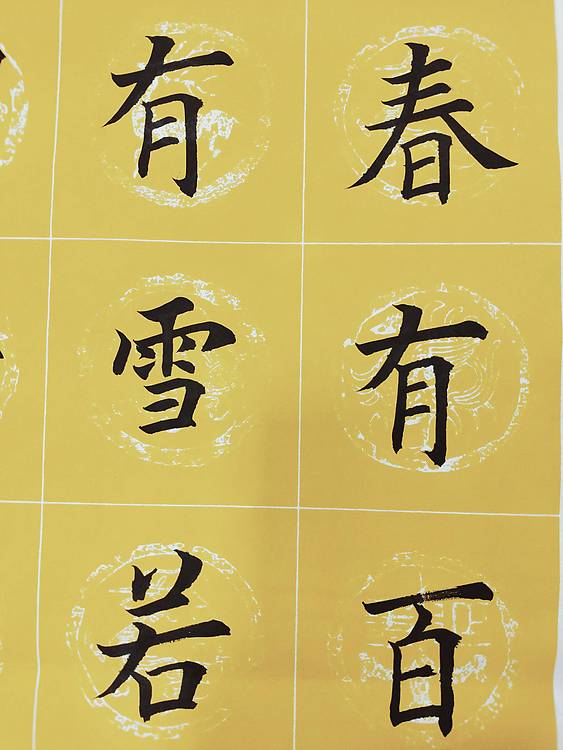 春有百
有雪若